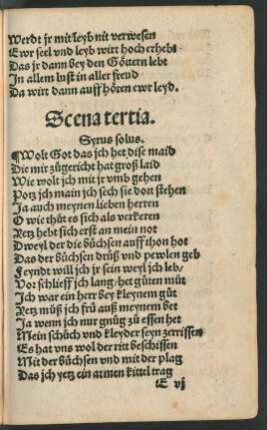 Werdt jr mit leyb nit verwesen
Ewr seel vnd leyb wirt hoch erhebt
Das jr dann bey den Göttern lebt
In allem lust in aller freud
Da wirt dann auff hören ewr leyd.
Scena tertia.
Syrus solus.
¶Wolt Got das jch het dise maid
Die mir zůgericht hat groß laid
Wie wolt jch mit jr vmb gehen
Potz jch main jch sech sie dort stehen
Ja auch meynen lieben herren
O wie thůt es sich als verkeren
Yetz hebt sich erst an mein not
Dweyl der die büchsen auff thon hot
Das der büchsen drüß vnd pewlen geb
Feyndt will jch jr sein weyl jch leb/
Vor schlieff jch lang/ het gůten můt
Ich war ein herr bey kleynem gůt
Yetz můß jch frů auß meynem bet
Ja wenn jch nur gnůg zů essen het
Mein schůch vnd kleyder seyn zerrissen
Es hat vns wol der ritt beschissen
Mit der büchsen vnd mit der plag
Das jch yetz ein armen kittel trag
E vj